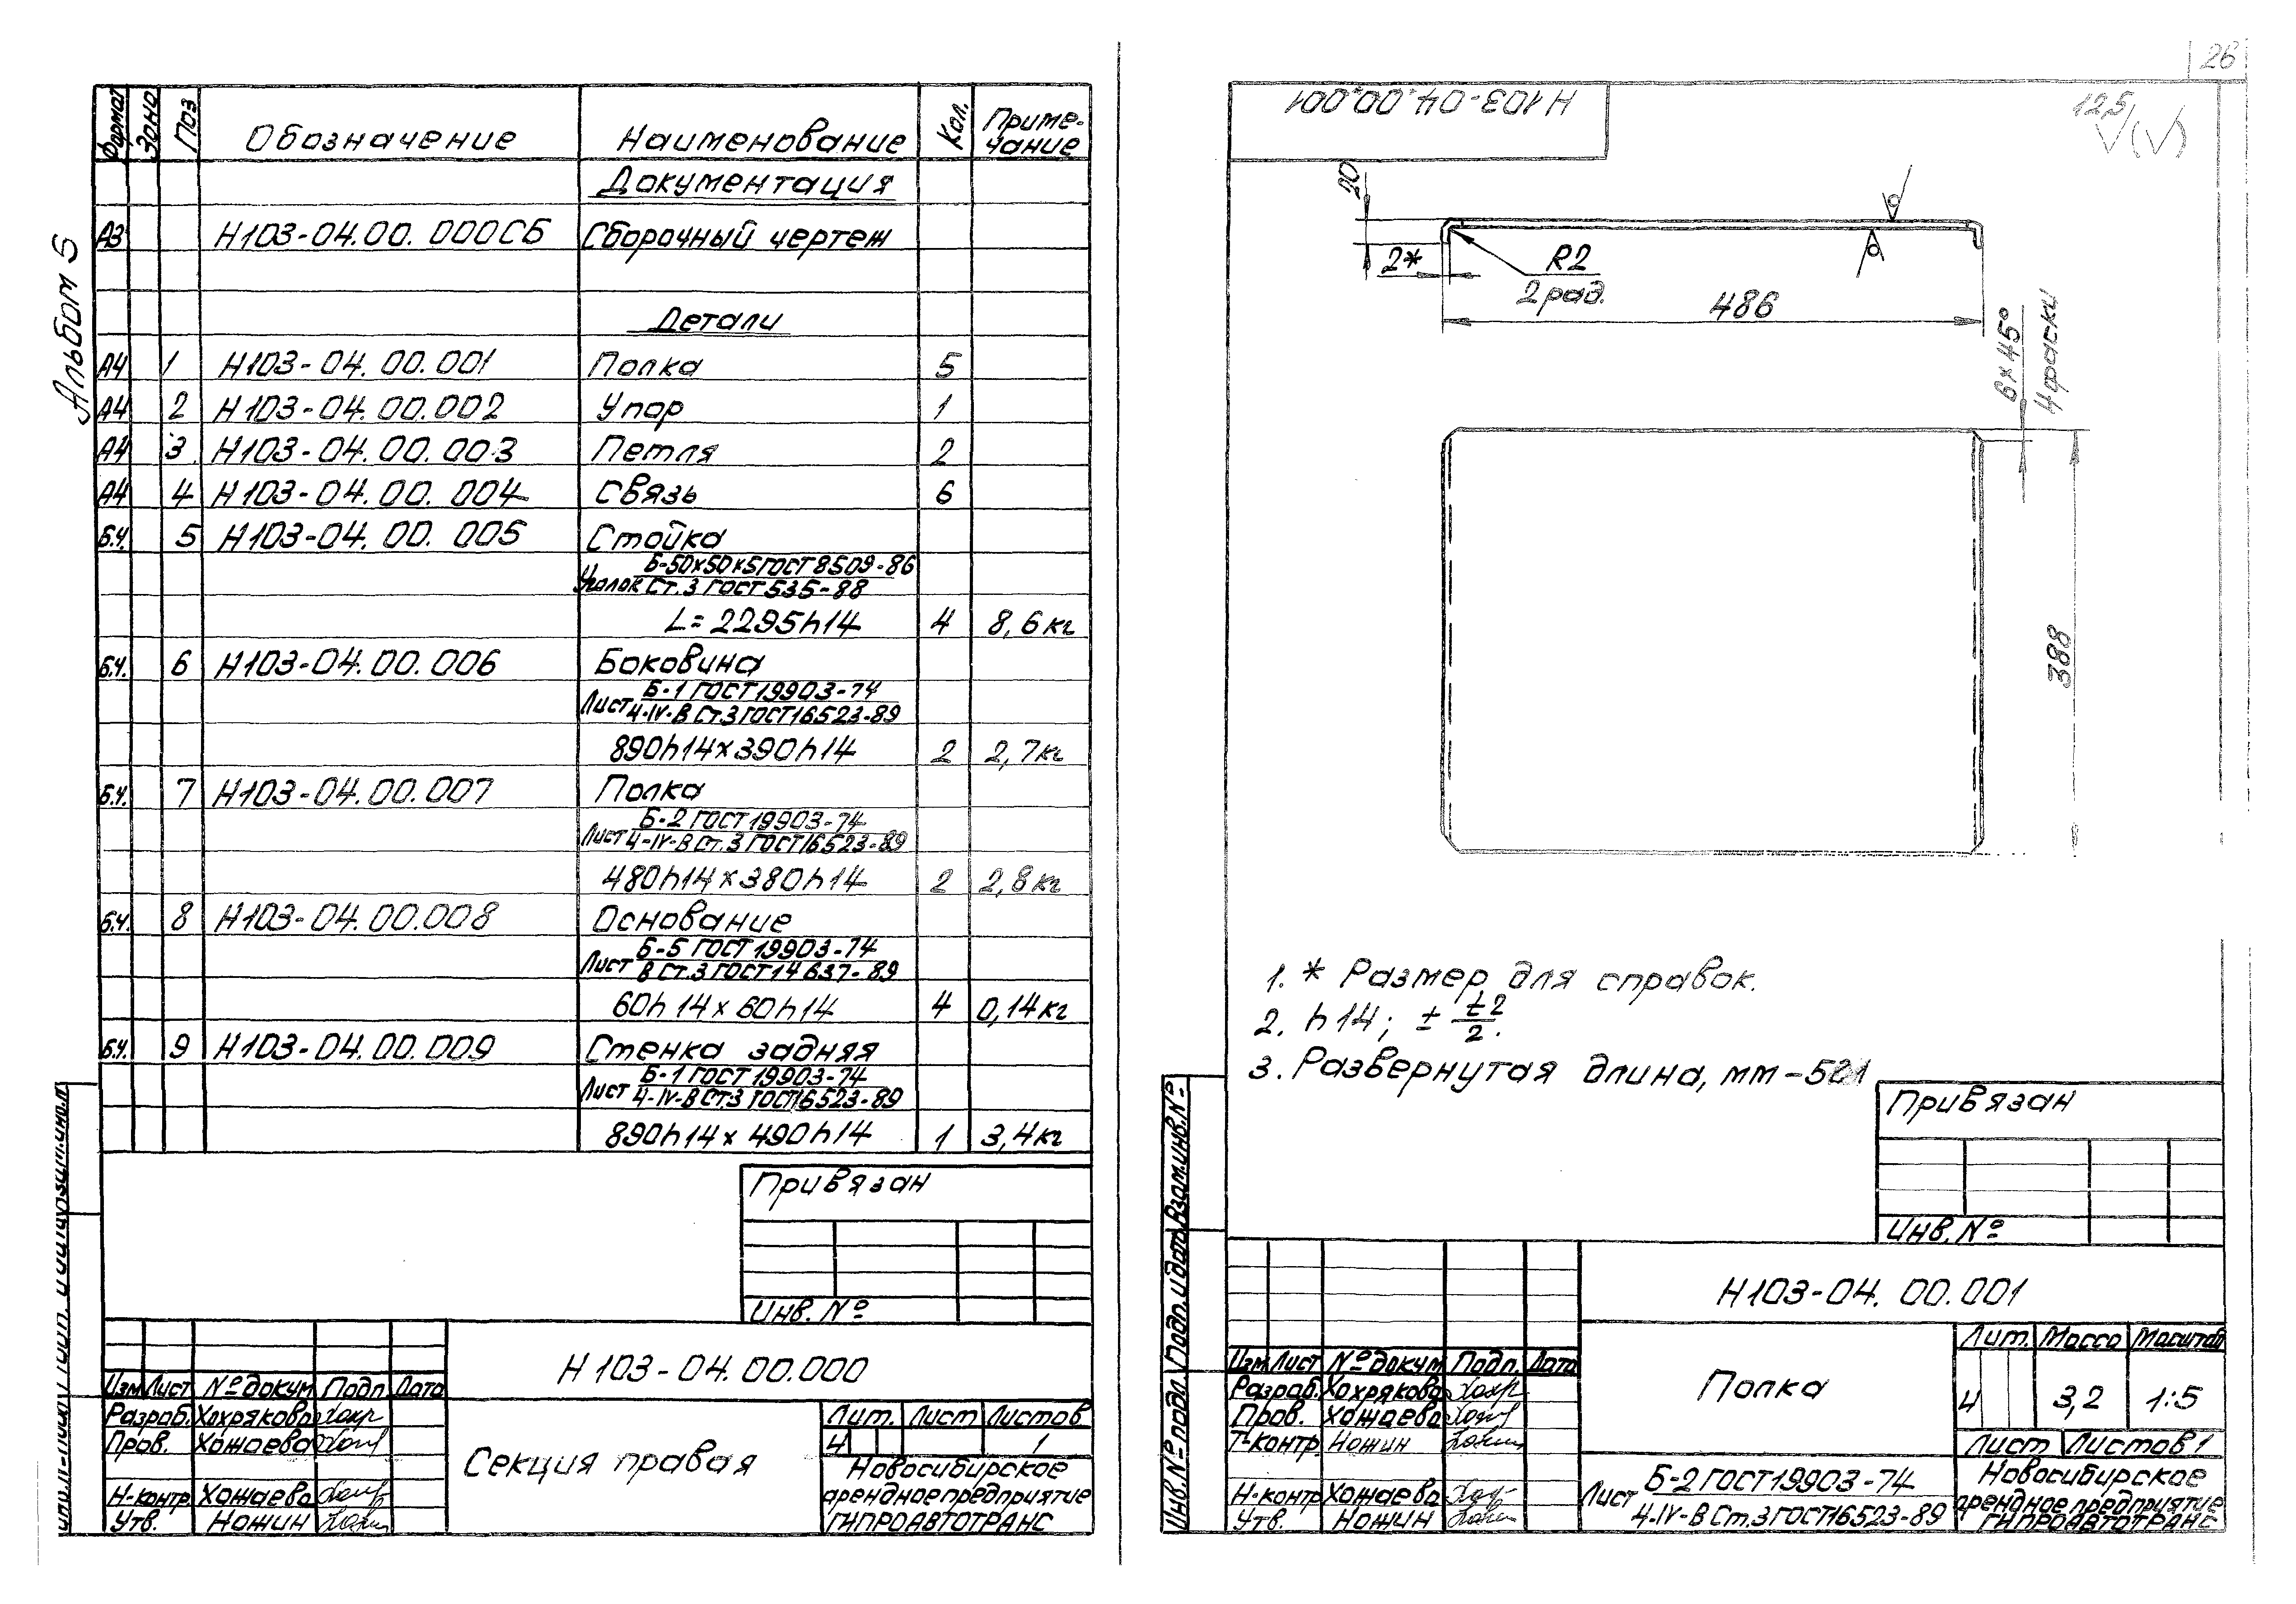 Альбом 5
Формат Зона Поз Обозначение Наименование Кол. Приме-
чание
Документация
А3 Н103-04.00.000СБ Сборочный чертеж
Детали
А4 1 Н103-04.00.001 Полка 5
А4 2 Н103-04.00.002 Упор 1
А4 3 Н103-04.00.003 Петля 2
А4 4 Н103-04.00.004 Связь 6
Б.Ч. 5 Н103-04.00.005 Стойка
Б-50х50х5 ГОСТ 8509-86
Уголок Ст.3 ГОСТ 535-88
L=2295h14 4 8,6кг
Б.Ч. 6 Н103-04.00.006 Боковина
Б-1 ГОСТ 19903-74
Лист 4-IV-В Ст.3 ГОСТ 16523-89
890h14×390h14 2 2,7кг
Б.Ч. 7 Н103-04.00.007 Полка
Б-2 ГОСТ 19903-74
Лист 4-IV-В Ст.3 ГОСТ 16523-89
480h14×380h14 2 2,8кг
Б.Ч. 8 Н103-04.00.008 Основание
Б-5 ГОСТ 19903-74
Лист В Ст.3 ГОСТ 14637-89
60h14×60h14 4 0,14кг
Б.Ч. 9 Н103-04.00.009 Стенка задняя
Б-1 ГОСТ 19903-74
Лист 4-IV-В Ст.3 ГОСТ 16523-89
890h14×490h14 1 3,4кг
Привязан
Инв.№
Н103-04.00.000
Изм Лист № докум Подп Дата
Разраб. Хохрякова
Пров. Хожаева
Н-контр Хожаева
Утв. Ножин
Секция правая
Лит. Лист Листов
Ч 1
Новосибирское
арендное предприятие
ГИПРОАВТОТРАНС
26
Н103-04.00.001
12,5 (√)
20
2*
R2
2 рад.
486
6×45°
4 фаски
388
1. * Размер для справок.
2. h14; ± t2/2.
3. Развернутая длина, мм-
Привязан
Инв.№
Инв.№ подл. Подп. и дата Взам.инв.№
Н103-04.00.001
Изм Лист № докум Подп. Дата
Разраб. Хохрякова
Пров. Хожаева
Т-контр. Ножин
Н-контр Хожаева
Утв. Ножин
Полка
Лит. Масса Масштаб
Ч 3,2 1:5
Лист Листов 1
Б-2 ГОСТ 19903-74
Лист 4-IV-В Ст.3 ГОСТ 16523-89
Новосибирское
арендное предприятие
ГИПРОАВТОТРАНС